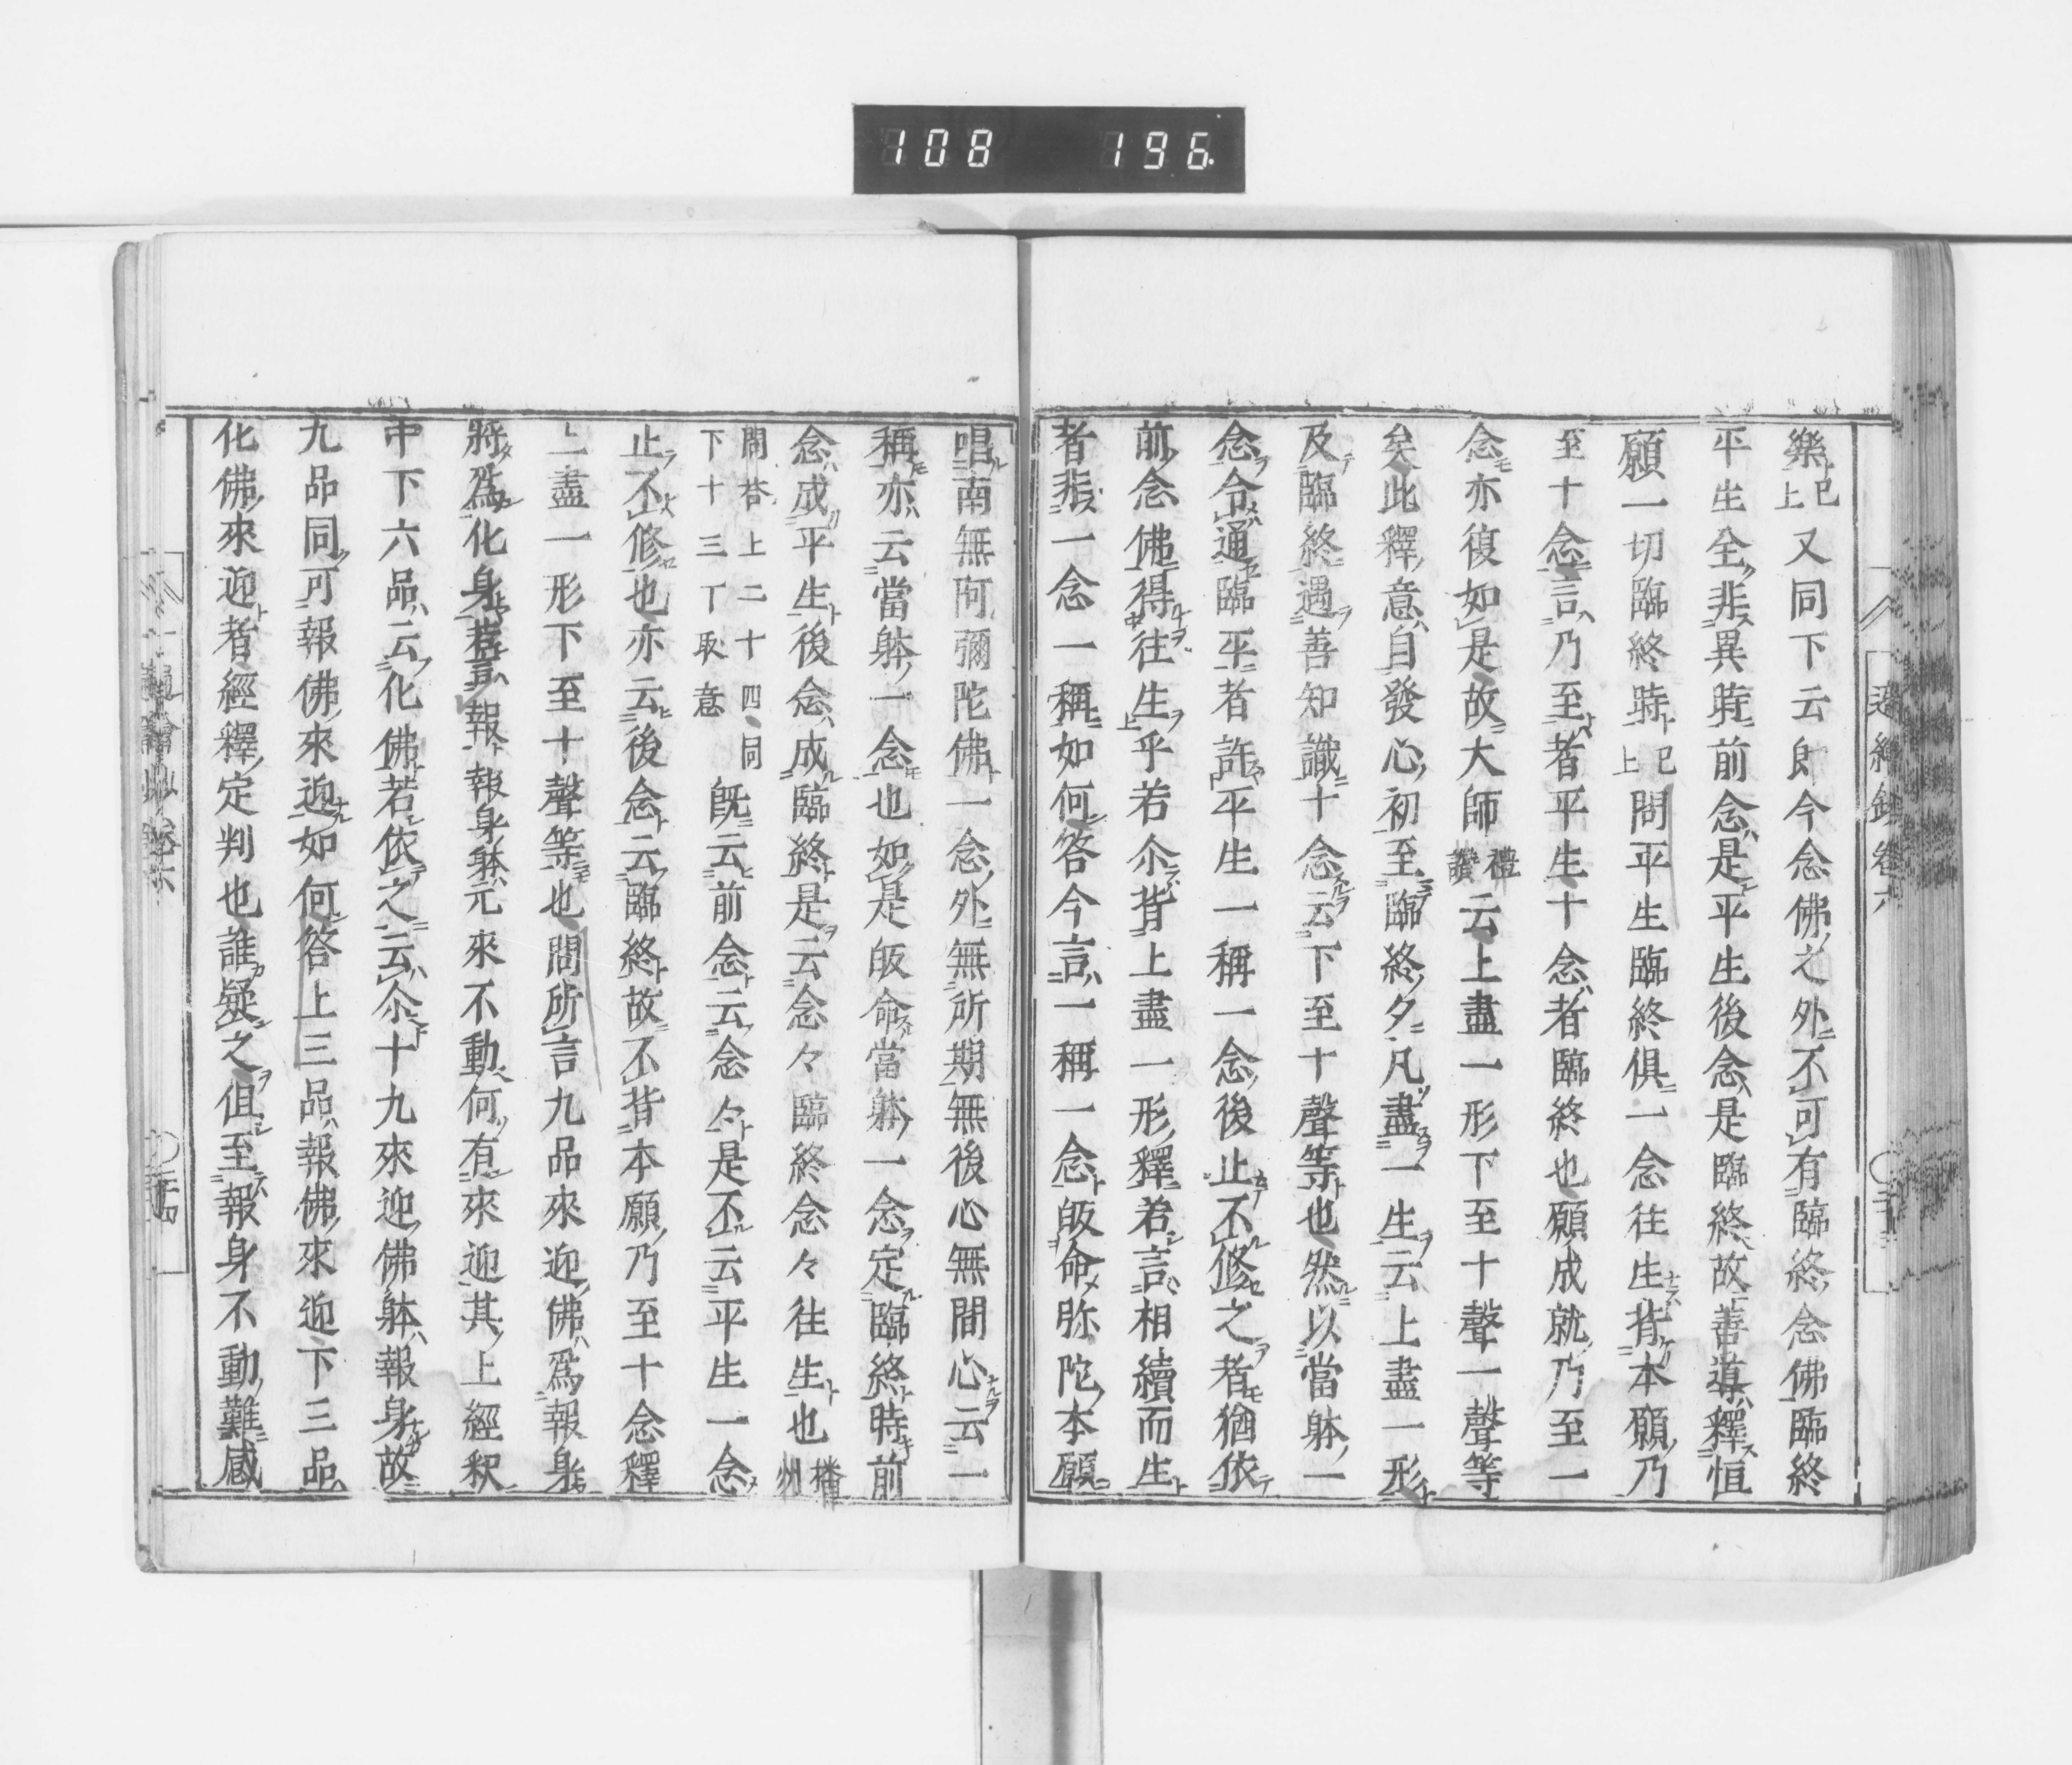 108 196
樂已上又同下云卽今念佛之外不可有臨終念佛臨終
平生全非異時前念是平生後念是臨終故善導釋恒
願一切臨終時已上問平生臨終俱一念往生背本願乃
至十念言乃至者平生十念者臨終也願成就乃至一
念亦復如是故大師禮讚云上盡一形下至十聲一聲等
矣此釋意自發心初至臨終夕凡盡一生云上盡一形
及臨終遇善知識十念云下至十聲等也然以當躰一
念令通臨平者許平生一稱一念後止不修之者猶依
前念佛得往生乎若尒背上盡一形釋若言相續而生
者非一念一稱如何答今言一稱一念皈命弥陀本願
唱南無阿彌陀佛一念外無所期無後心無間心云一
稱亦云當躰一念也如是皈命當躰一念定臨終時前
念成平生後念成臨終是云念々臨終念々往生也播州
問荅上二十四同下十三丁取意既云前念云念々是不云平生一念
止不修也亦云後念云臨終故不背本願乃至十念釋
上盡一形下至十聲等也問所言九品來迎佛爲報身
將爲化身若言報報身躰元來不動何有來迎其上經釈
中下六品云化佛若依之云尒十九來迎佛躰報身故
九品同可報佛來迎如何答上三品報佛來迎下三品
化佛來迎者經釋定判也誰疑之但至報身不動難感